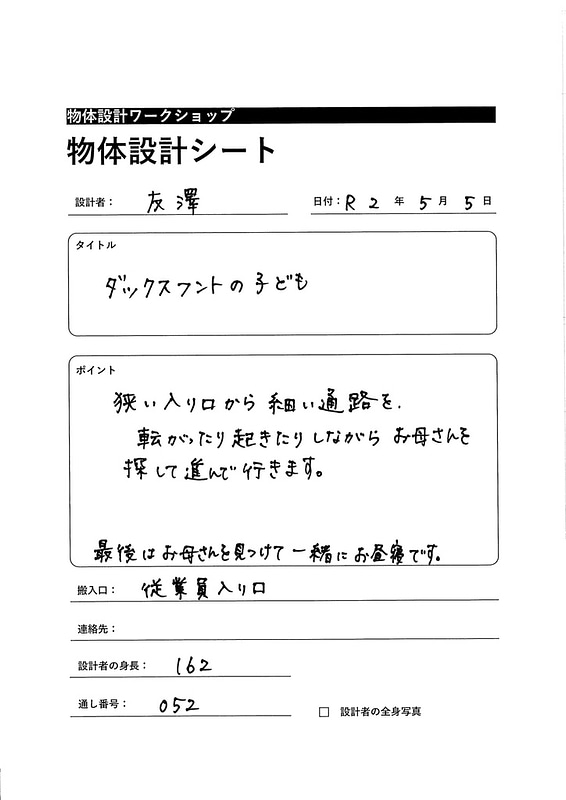 物体設計ワークショップ
物体設計シート
設計者： 友澤 日付：R 2 年 5 月 5 日
タイトル
ダックスフントの子ども
ポイント
狭い入り口から細い通路を、
転がったり起きたりしながらお母さんを
探して進んで行きます。
最後はお母さんを見つけて一緒にお昼寝です。
搬入口： 従業員入り口
連絡先：
設計者の身長： 162
通し番号： 052
□ 設計者の全身写真